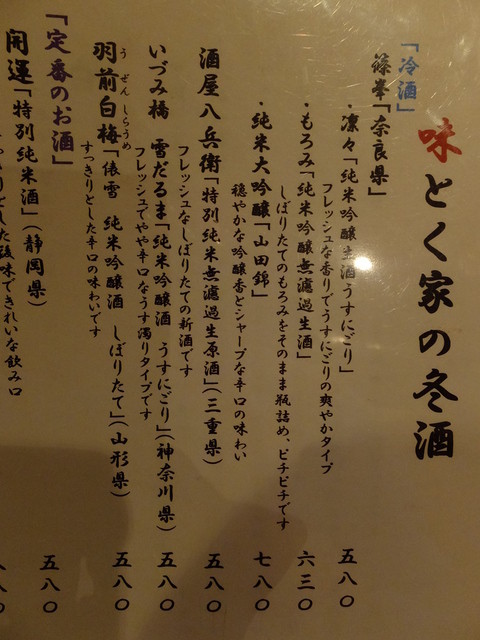 味とく家の冬酒
「冷酒」
篠峯「奈良県」
・凛々「純米吟醸生酒うすにごり」 五八〇
フレッシュな香りでうすにごりの爽やかタイプ
・もろみ「純米吟醸無濾過生酒」 六三〇
しぼりたてのもろみをそのまま瓶詰め、ピチピチです
・純米大吟醸「山田錦」 七八〇
穏やかな吟醸香とシャープな辛口の味わい
酒屋八兵衛「特別純米無濾過生原酒」(三重県) 五八〇
フレッシュなしぼりたての新酒です
いづみ橋 雪だるま「純米吟醸酒 うすにごり」(神奈川県) 五八〇
フレッシュでやや辛口なうす濁りタイプです
羽前白梅「俵雪 純米吟醸酒 しぼりたて」(山形県) 五八〇
う ぜん しらうめ
すっきりとした辛口の味わいです
「定番のお酒」
開運「特別純米酒」(静岡県) 五八〇
した酸味できれいな飲み口
八〇